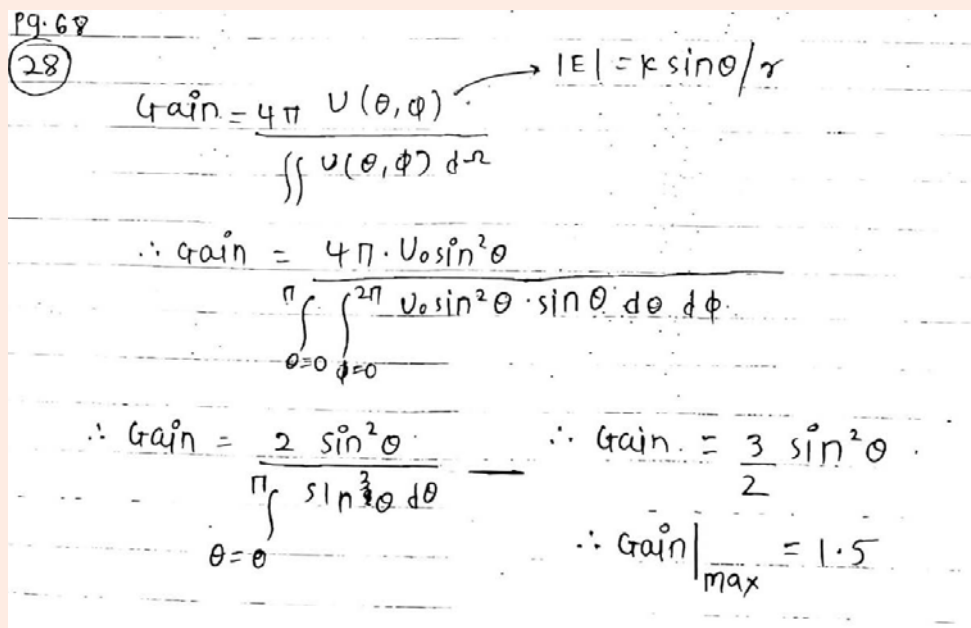 Pg. 68
28
|E| = k sinθ/r
Gain = 4π U(θ,φ) / ∬ U(θ,φ) dΩ
∴ Gain = 4π. U₀ sin²θ / ∫θ=0^π ∫φ=0^2π U₀ sin²θ · sinθ dθ dφ.
∴ Gain = 2 sin²θ / ∫θ=0^π sin³θ dθ
∴ Gain. = 3/2 sin²θ.
∴ Gain|max = 1.5